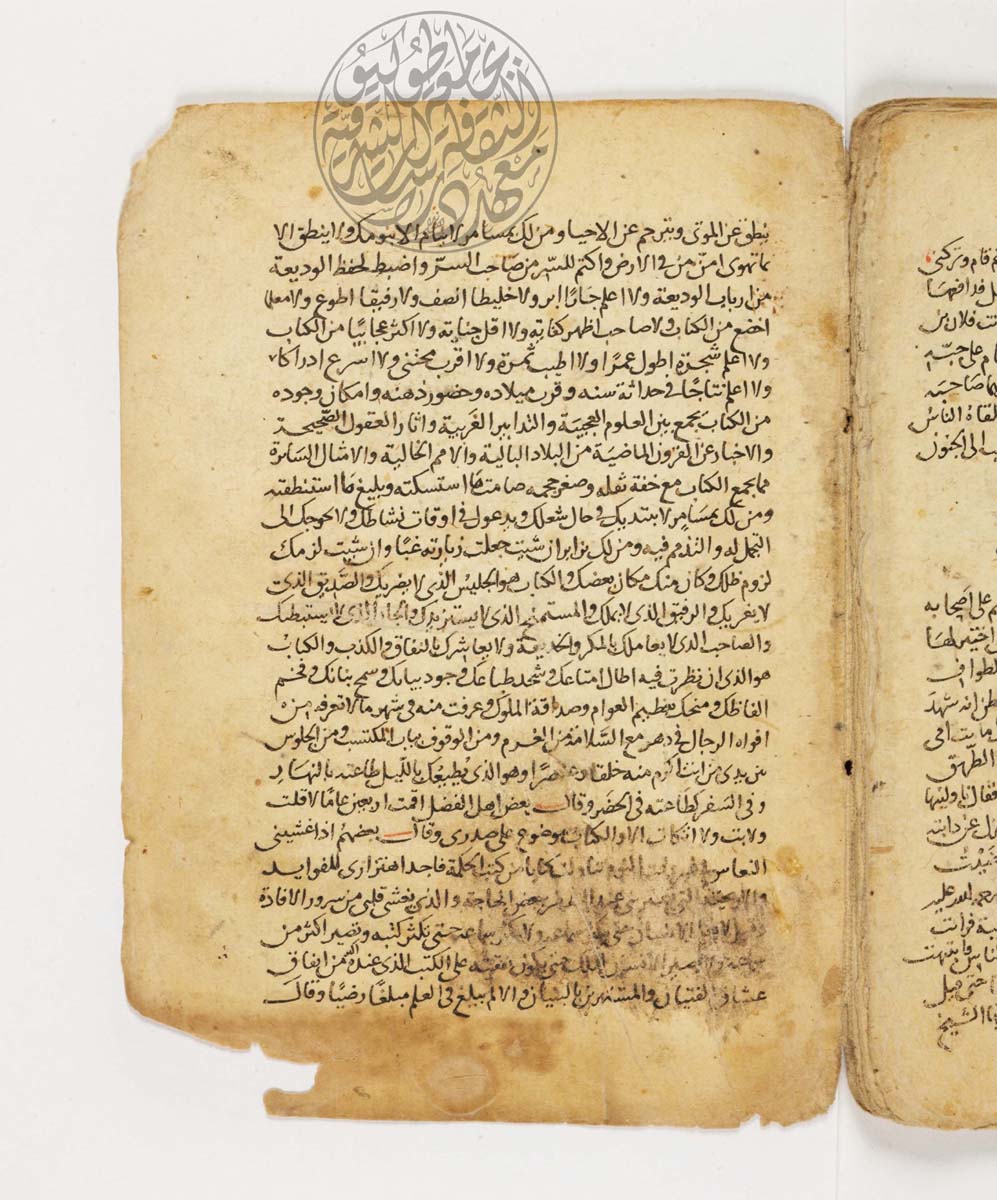 ينطق عن الموتى ويترجم عن الاحياء ومن لك بمسامر لا ينام الا بنومك ولا ينطق الا
بما تهوى امن من في الارض واكتم للسر من صاحب السر واضبط لحفظ الوديعة
من ارباب الوديعة ولا اعلم جارًا ابر ولا خليطا انصف ولا رفيقا اطوع ولا معلما
اخضع من الكتاب ولا صاحب اظهر كفاية ولا اقل جناية ولا اكثر عجايبًا من الكتاب
ولا اعلم شجرة اطول عمرًا ولا اطيب ثمرة ولا اقرب مجتنى ولا اسرع ادراكا
ولا اعلم نتاجًا في حداثة سنه وقرب ميلاده وحضور ذهنه وامكان وجوده
من الكتاب يجمع بين العلوم العجيبة والتدابير الغريبة واثار العقول الصحيحة
والاخبار عن القرون الماضية من البلاد البالية والامم الخالية والامثال السايرة
مما يجمع الكتاب مع خفة ثقله وصغر حجمه صامت ما استسكته وبليغ ما استنطقته
ومن لك بمسامر لا يبتديك في حال شغلك ويدعوك في اوقات نشاطك ولا يحوجك الى
التجمل له والتذمم فيه ومن لك بزاير ان شيت جعلت زيارته غبًا وان شيت لزمك
لزوم ظلك وكان منك مكان بعضك والكتاب هو الجليس الذي لا يغريك والصديق الذي
لا يغريك والرفيق الذي لا يملك والمستميح الذي لا يستزيدك والجار الذي لا يستبطيك
والصاحب الذي لا يعاملك بالمكر والخديعة ولا يعاشرك بالنفاق والكذب والكتاب
هو الذي ان نظرت فيه اطال امتاعك وشحذ طباعك وجود بيانك وسمح بنانك وفخم
الفاظك ومنحك تعظيم العوام وصداقة الملوك وعرفت منه في شهر ما لا تعرفه من
افواه الرجال في دهر مع السلامة من الغرم ومن الوقوف بباب المكتسب ومن الجلوس
بين يدي من انت اكرم منه خلقا وعنصرًا وهو الذي يطيعك بالليل طاعته بالنهار
وفي السفر كطاعته في الحضر وقال بعض اهل الفضل اقمت اربعين عامًا لا قلت
ولا بت ولا اتكات الا والكتاب موضوع على صدري وقال بعضهم اذا غشيني
النعاس في غير وقت النوم تناولت كتابا من كتب الحكمة فاجد اهتزازي للفوايد
والاريحية التي تعتريني عند الظفر ببعض الحاجة والذي يغشى قلبي من سرور الافادة
لا الانسان حتى يكثر سماعه ولا يكثر سماعه حتى تكثر كتبه وتصير اكثر من
سماعه ولا يصير الانسان حتى يكون نفقته على الكتب الذي عنده اكثر من انفاق
عشاق الفتيان والمستهترين بالبنيان والا لم يبلغ في العلم مبلغًا رضيًا وقال